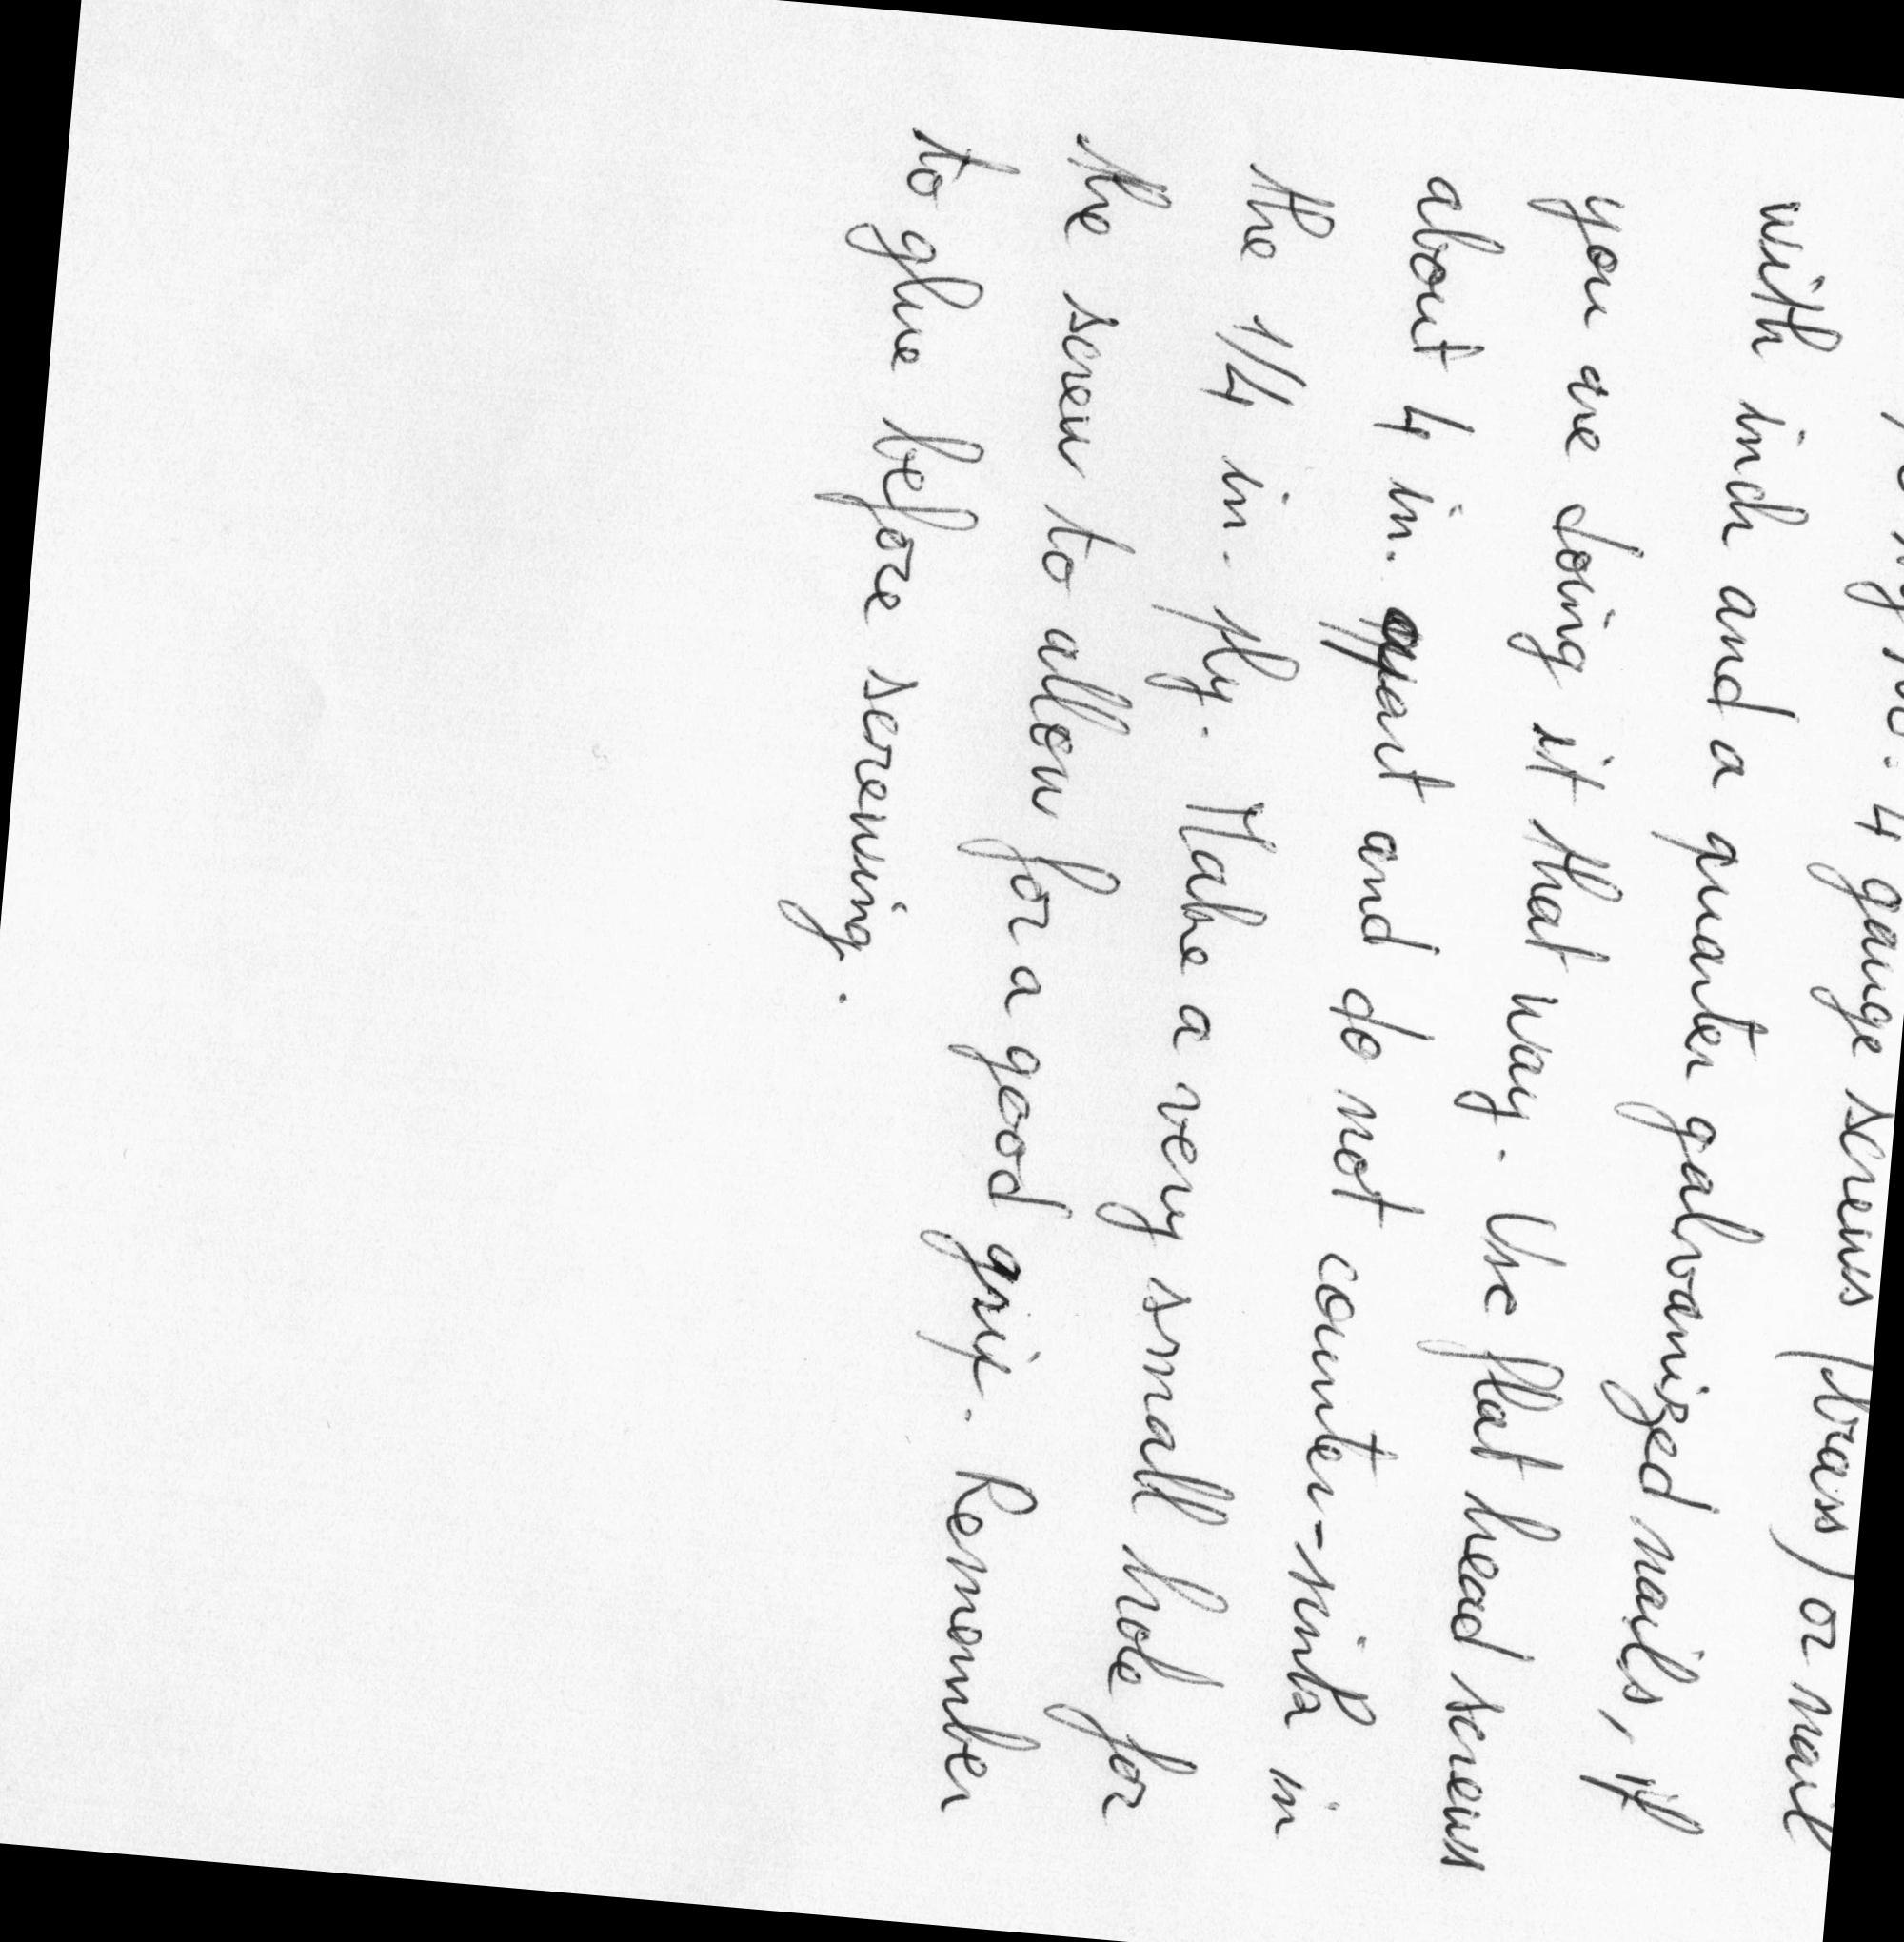 4 gauge screws (brass) or nail
with inch and a quarter galvanized nails, if
you are doing it that way. Use flat head screws
about 4 in. apart and do not counter-sink in
the 1/4 in. ply. Make a very small hole for
the screw to allow for a good grip. Remember
to glue before screwing.